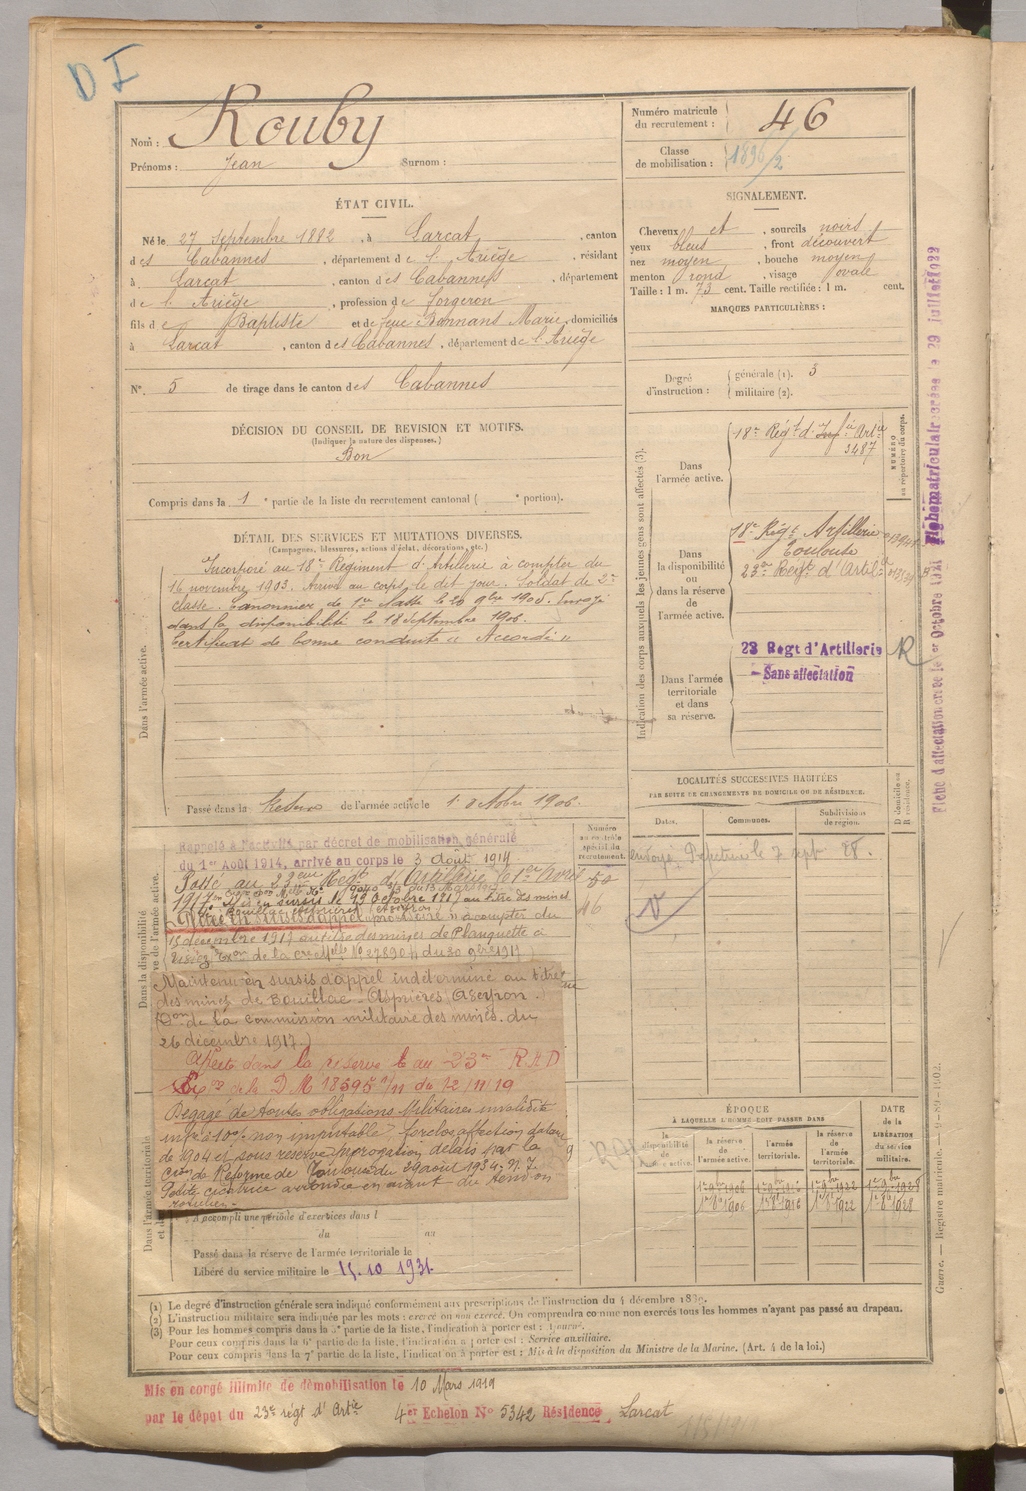 D I
Nom : Rouby
Prénoms : Jean Surnom :
Numéro matricule du recrutement : 46
Classe de mobilisation : 1896/2
ÉTAT CIVIL.
Né le 27 Septembre 1882, à Larcat, canton
des Cabannes, département de l'Ariège, résidant
à Larcat, canton des Cabannes, département
de l'Ariège, profession de forgeron
fils de Baptiste et de feue Bonnans Marie, domiciliés
à Larcat, canton des Cabannes, département de l'Ariège
N° 5 de tirage dans le canton des Cabannes
SIGNALEMENT.
Cheveux et, sourcils noirs
yeux bleus, front découvert
nez moyen, bouche moyen
menton rond, visage ovale
Taille : 1 m. 73 cent. Taille rectifiée : 1 m. cent.
MARQUES PARTICULIÈRES :
Degré d'instruction : générale (1). 3
militaire (2).
DÉCISION DU CONSEIL DE REVISION ET MOTIFS.
(Indiquer la nature des dispenses.)
Bon
Compris dans la 1e partie de la liste du recrutement cantonal ( e portion).
DÉTAIL DES SERVICES ET MUTATIONS DIVERSES.
(Campagnes, blessures, actions d'éclat, décorations, etc.)
Dans l'armée active.
Incorporé au 18e Régiment d'Artillerie à compter du
16 novembre 1903. Arrivé au corps le dit jour. Soldat de 2e
classe. Canonnier de 1re classe le 20 9bre 1905. Envoyé
dans la disponibilité le 18 Septembre 1906.
Certificat de bonne conduite "Accordé"
Passé dans la Réserve de l'armée active le 1er octobre 1906.
Indication des corps auxquels les jeunes gens sont affectés (3).
NUMÉRO au répertoire du corps.
Dans l'armée active.
18e Régt d'Inf ie Artie
3487
Dans la disponibilité ou dans la réserve de l'armée active.
18e Régt Artillerie
Toulouse
23e Regt d'Artil
Dans l'armée territoriale et dans sa réserve.
23 Regt d'Artillerie R
Sans affectation
LOCALITÉS SUCCESSIVES HABITÉES
PAR SUITE DE CHANGEMENTS DE DOMICILE OU DE RÉSIDENCE.
Dates. Communes. Subdivisions de région. D domicile ou R résidence.
Numéro au contrôle spécial du recrutement.
50
46
V
Dans la disponibilité ou dans la réserve de l'armée active.
Rappelé à l'activité par décret de mobilisation générale
du 1er Août 1914, arrivé au corps le 3 août 1914
Passé au 23eme Regt d'Artillerie le 1er Avril
1917
Mis en sursis le 29 Octobre 1917 au titre des mines
Bouillac Asprières (Aveyron)
Placé en sursis d'appel provisoire à compter du
15 décembre 1917 au titre des mines de Planquette à
Maintenu en sursis d'appel indéterminé au titre
des mines de Bouillac-Asprières, Aveyron.
(Don de la Commission militaire des mines du
26 décembre 1917.)
Affecté dans la réserve au 23e R.A.D
de la D.M. 18595 1/11 du 12/11/19
Dégagé de toutes obligations Militaires invalidité
infre à 10% non imputable, forclos affection datant
de 1904 et sous réserve prorogation délais par la
Cion de Réforme de Toulouse du 29 août 1934. N. 7
Petite cicatrice arrondie en avant du tendon
rotulien.
Dans l'armée territoriale
A accompli une période d'exercices dans l
du au
Passé dans la réserve de l'armée territoriale le
Libéré du service militaire le 15.10 1931
ÉPOQUE
À LAQUELLE L'HOMME DOIT PASSER DANS
DATE DE LA LIBÉRATION du service militaire.
la disponibilité de l'armée active. la réserve de l'armée active. l'armée territoriale. la réserve de l'armée territoriale.
1er 8bre 1906 1er 8bre 1916 1er 8bre 1922 1er 8bre 1928
(1) Le degré d'instruction générale sera indiqué conformément aux prescriptions de l'instruction du 4 décembre 1889.
(2) L'instruction militaire sera indiquée par les mots : exercé ou non exercé. On comprendra comme non exercés tous les hommes n'ayant pas passé au drapeau.
(3) Pour les hommes compris dans la 5e partie de la liste, l'indication à porter est : Ajourné.
Pour ceux compris dans la 6e partie de la liste, l'indication à porter est : Service auxiliaire.
Pour ceux compris dans la 7e partie de la liste, l'indication à porter est : Mis à la disposition du Ministre de la Marine. (Art. 4 de la loi.)
Mis en congé illimité de démobilisation le 10 Mars 1919
par le dépôt du 23e régt d'Artie 4er Echelon N° 5342 Résidence Larcat
Fiche d'affectation créée le 1er Octobre 1921 Fiche matriculaire créée le 29 juillet 1922
Guerre. — Registre matricule. — 9-89-1902.